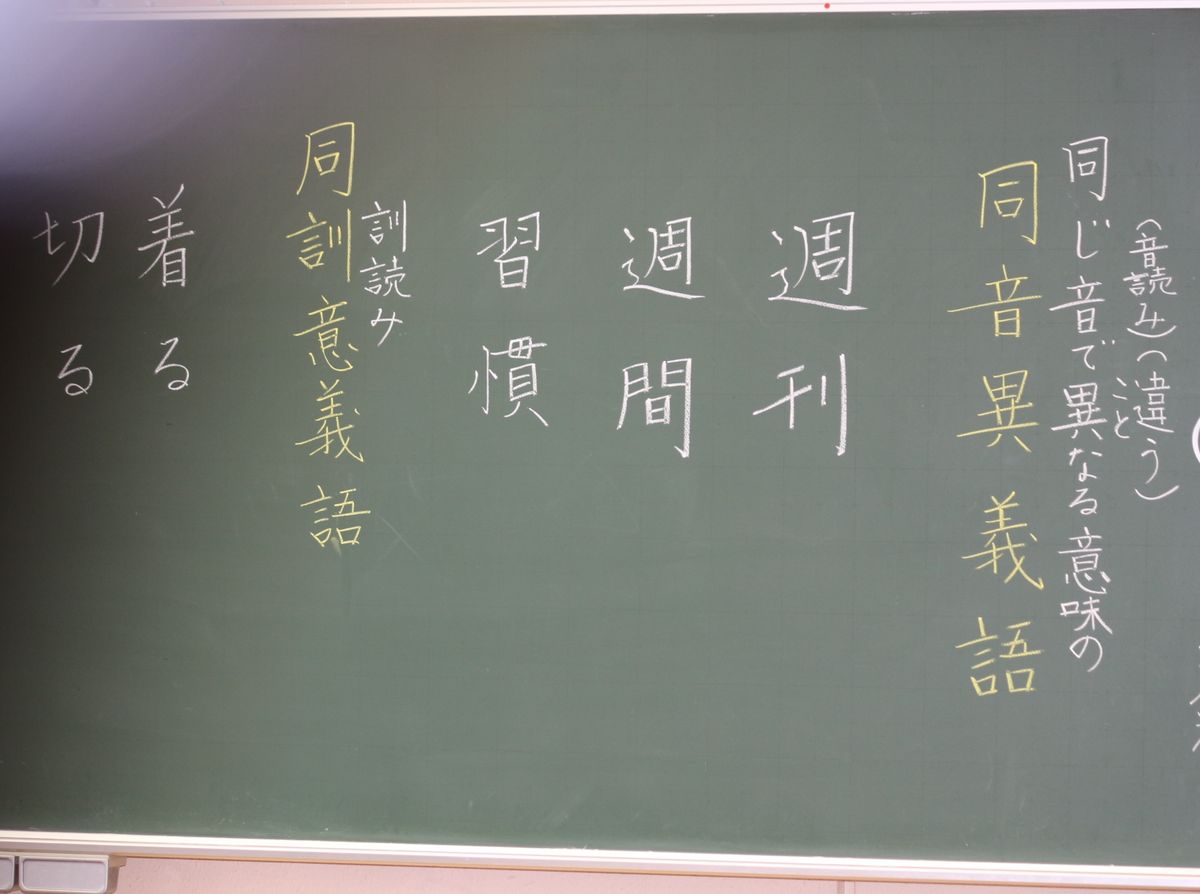 （音読み）（違う）
同じ音で異なる意味の
こと
同音異義語
週刊
週間
習慣
訓読み
同訓意義語
着る
切る